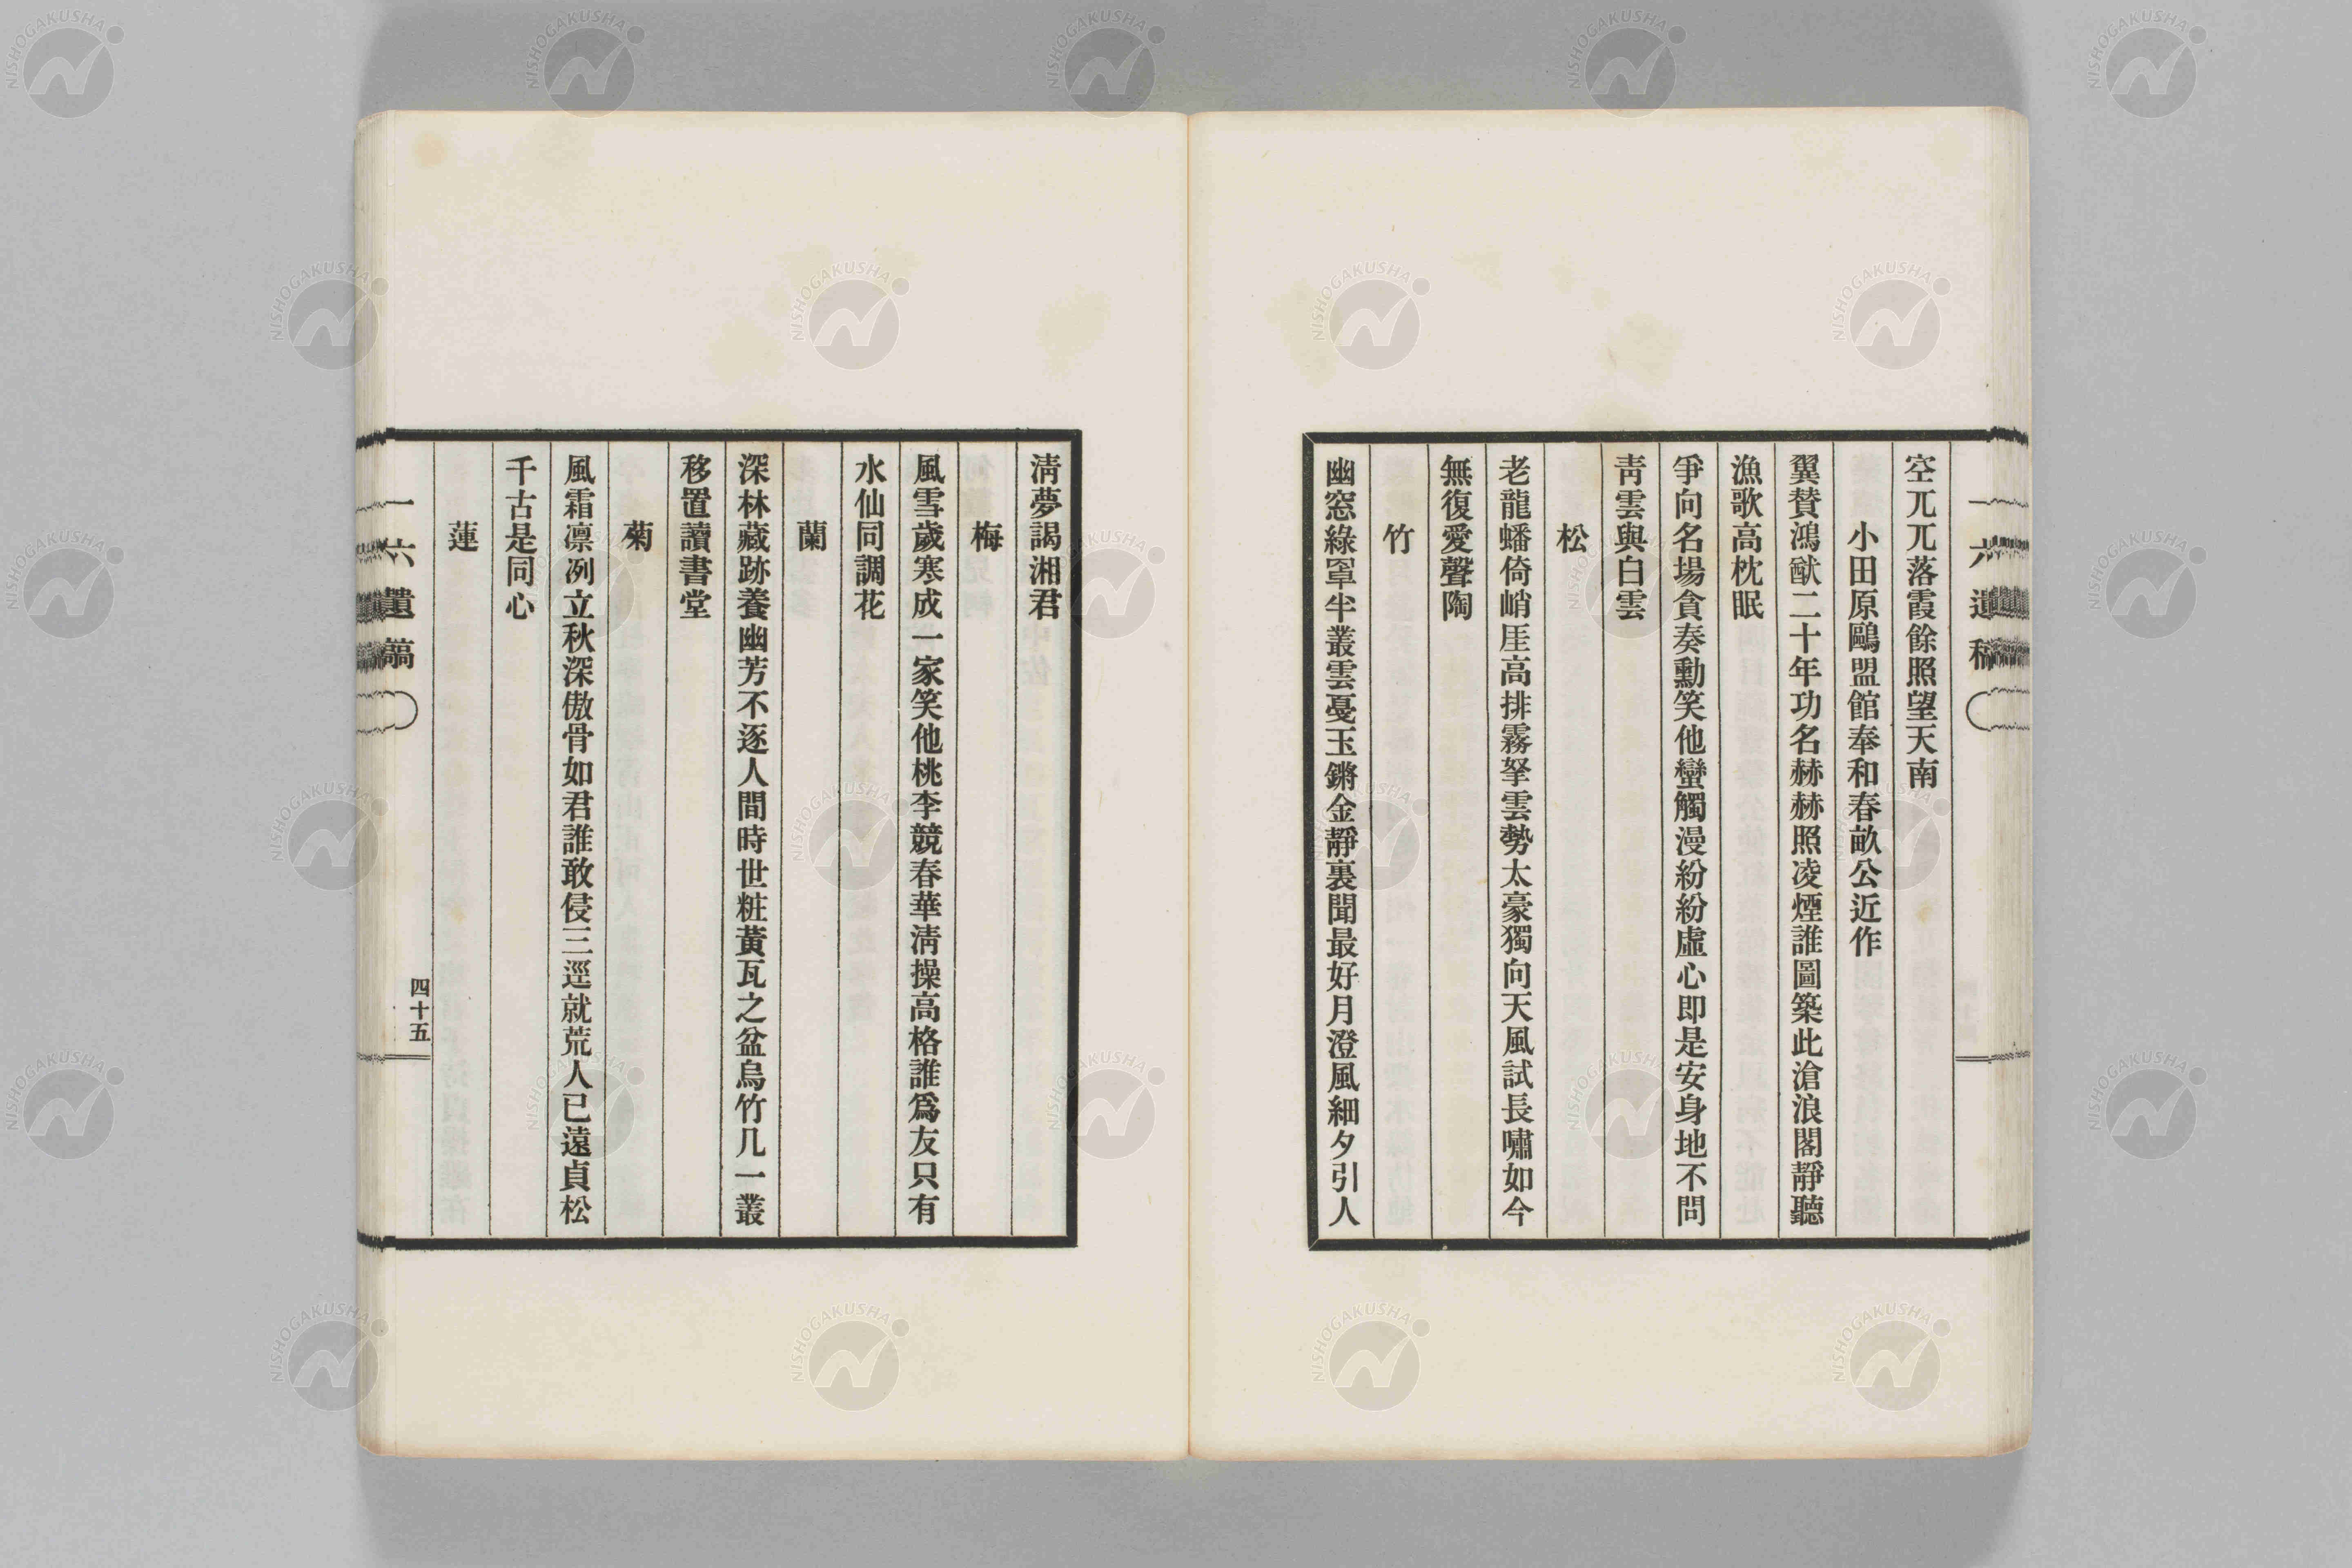 一六遺稿
空兀兀落霞餘照望天南
小田原鷗盟館奉和春畝公近作
翼賛鴻猷二十年功名赫赫照凌煙誰圖築此滄浪閣靜聽
漁歌高枕眠
爭向名場貪奏勳笑他蠻觸漫紛紛虛心即是安身地不問
靑雲與白雲
松
老龍蟠倚峭厓高排霧拏雲勢太豪獨向天風試長嘯如今
無復愛聲陶
竹
幽窓綠罩半叢雲戞玉鏘金靜裏聞最好月澄風細夕引人
淸夢謁湘君
梅
風雪歲寒成一家笑他桃李競春華淸操高格誰爲友只有
水仙同調花
蘭
深林藏跡養幽芳不逐人間時世粧黃瓦之盆烏竹几一叢
移置讀書堂
菊
風霜凛冽立秋深傲骨如君誰敢侵三逕就荒人已遠貞松
千古是同心
蓮
一六遺稿
四十五
NISHOGAKUSHA